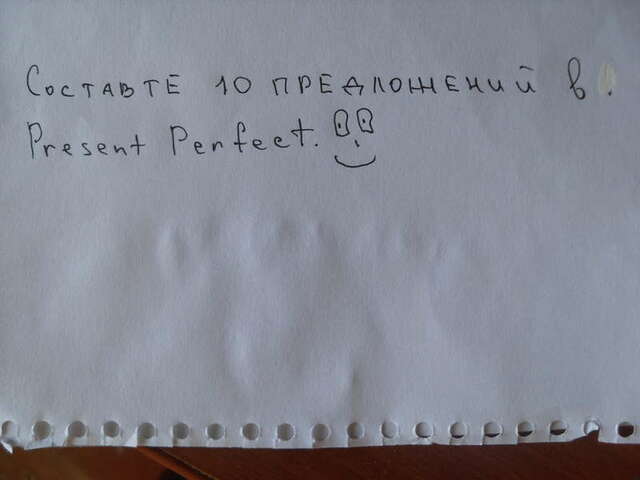 Составте 10 предложений в
Present Perfect.